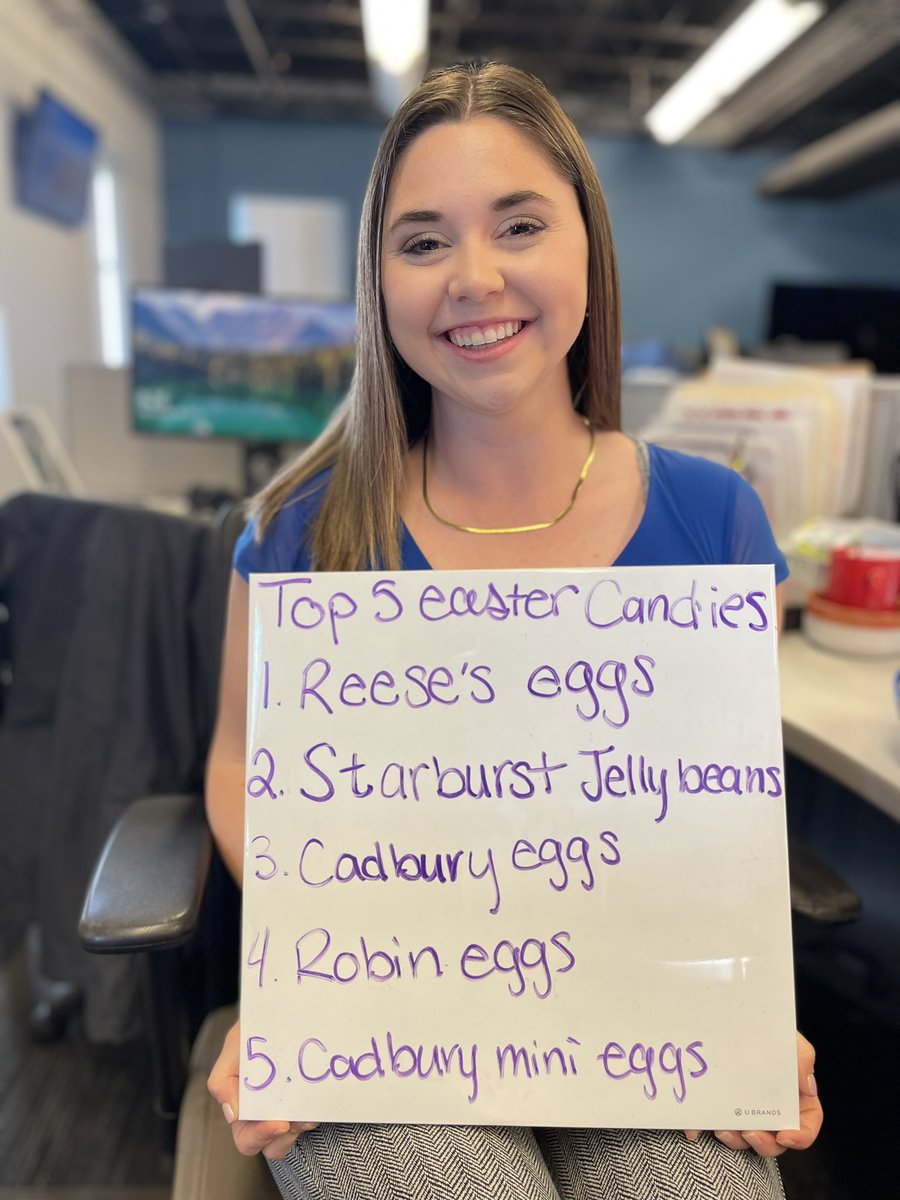 Top 5 easter Candies
1. Reese's eggs
2. Starburst Jelly beans
3. Cadbury eggs
4. Robin eggs
5. Cadbury mini eggs
U BRANDS